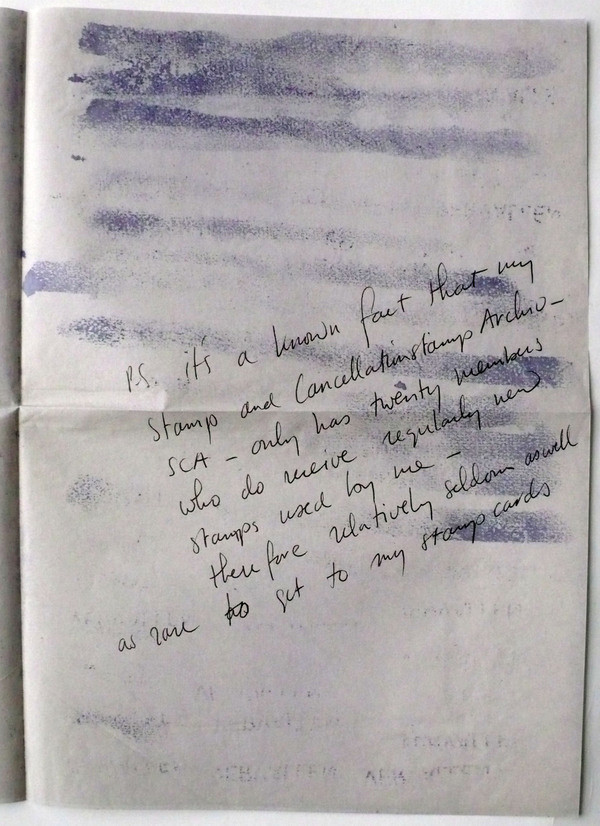 P.S. it's a known fact that my
Stamp and Cancellationstamp Archiv–
SCA – only has twenty members
who do receive regularly new
stamps used by me –
therefore relatively seldom aswell
as rare to get to my stamp cards